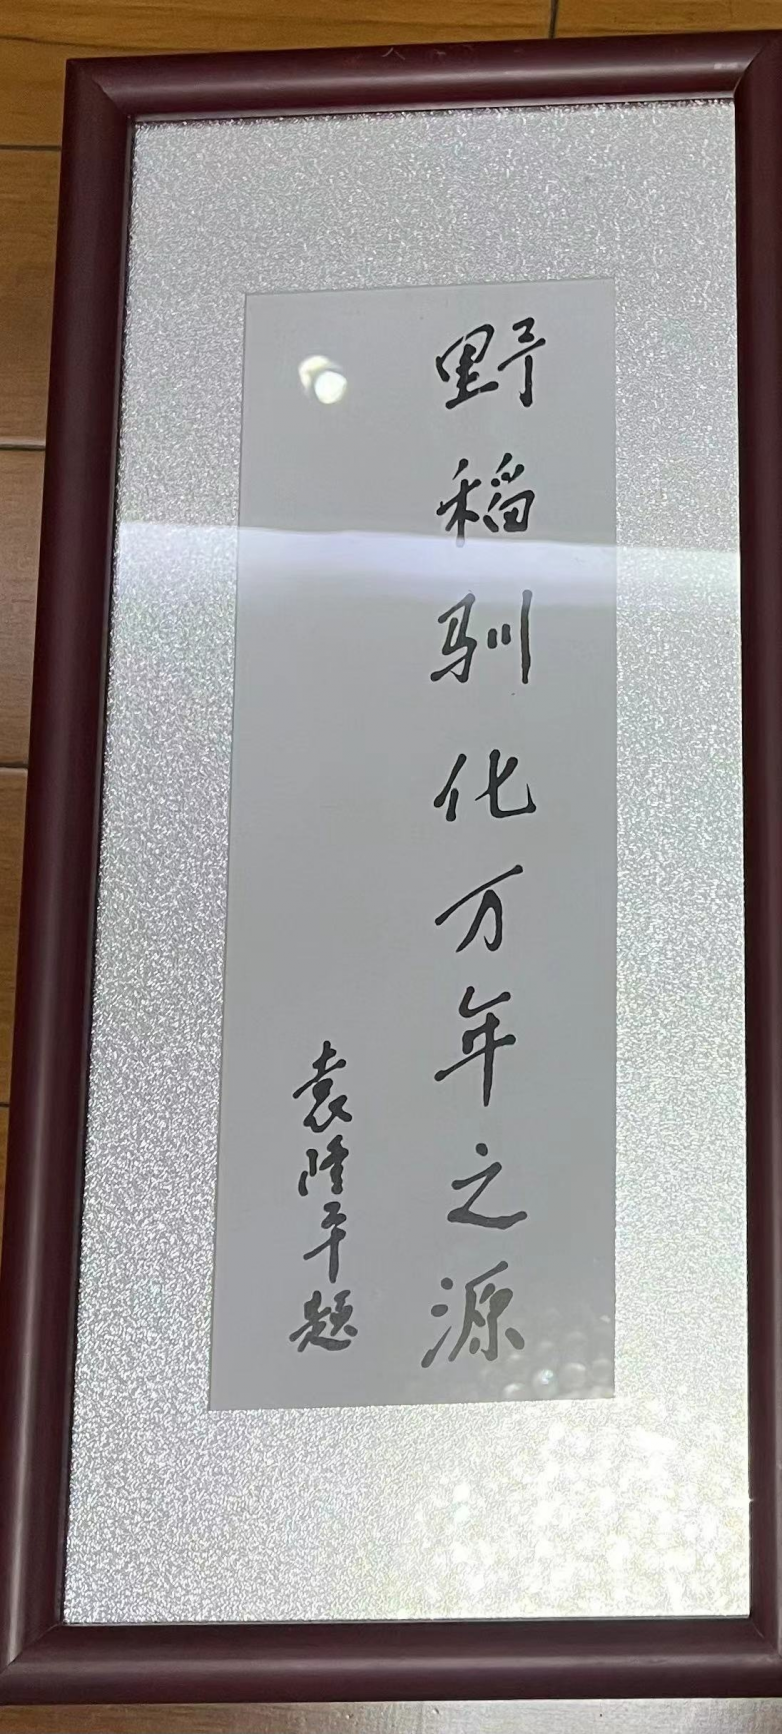 野稻驯化万年之源
袁隆平题